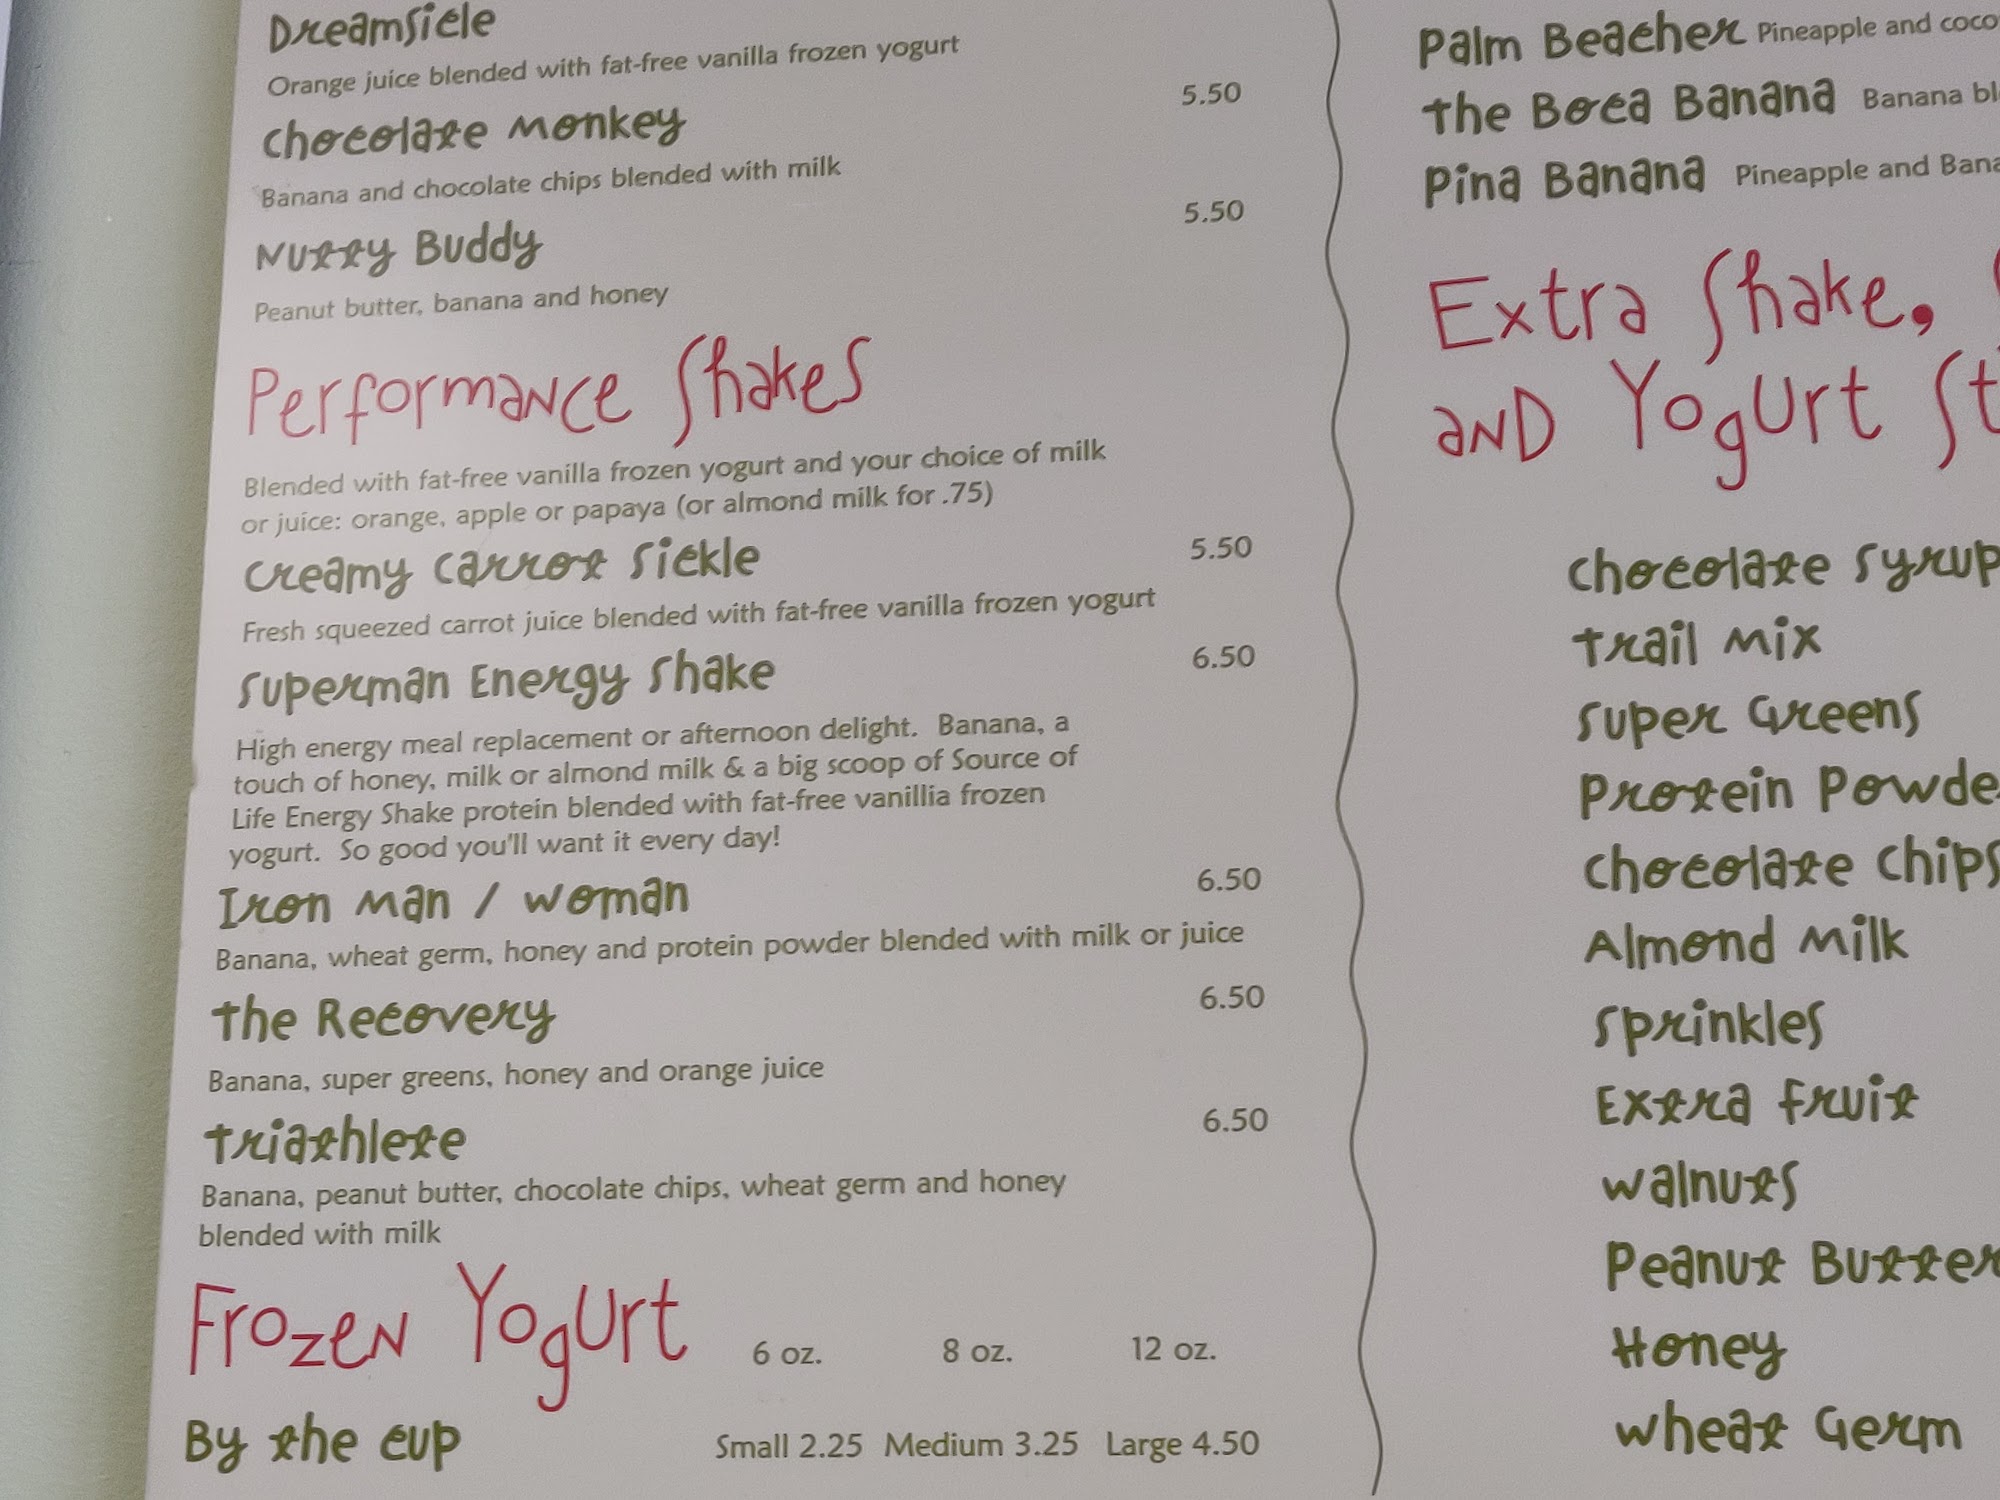 Dreamsicle
Orange juice blended with fat-free vanilla frozen yogurt
Chocolate Monkey 5.50
Banana and chocolate chips blended with milk
Nutty Buddy 5.50
Peanut butter, banana and honey
Performance Shakes
Blended with fat-free vanilla frozen yogurt and your choice of milk
or juice: orange, apple or papaya (or almond milk for .75)
Creamy Carrot Sickle 5.50
Fresh squeezed carrot juice blended with fat-free vanilla frozen yogurt
Superman Energy Shake 6.50
High energy meal replacement or afternoon delight. Banana, a
touch of honey, milk or almond milk & a big scoop of Source of
Life Energy Shake protein blended with fat-free vanillia frozen
yogurt. So good you'll want it every day!
Iron Man / Woman 6.50
Banana, wheat germ, honey and protein powder blended with milk or juice
The Recovery 6.50
Banana, super greens, honey and orange juice
Triathlete 6.50
Banana, peanut butter, chocolate chips, wheat germ and honey
blended with milk
Frozen Yogurt 6 oz. 8 oz. 12 oz.
By the cup Small 2.25 Medium 3.25 Large 4.50
Palm Beacher Pineapple and coco
The Boca Banana Banana bl
Pina Banana Pineapple and Bana
Extra Shake,
and Yogurt St
Chocolate Syrup
Trail Mix
Super Greens
Protein Powde
Chocolate Chips
Almond Milk
Sprinkles
Extra Fruit
Walnuts
Peanut Butter
Honey
Wheat Germ